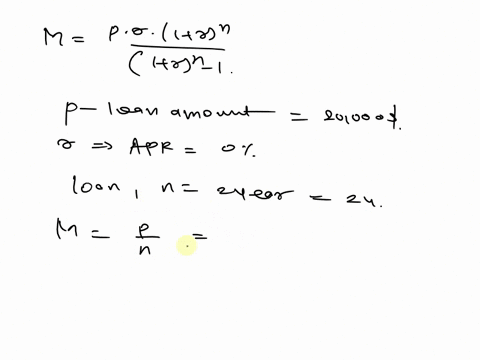 M = p.r.(1+r)^n / (1+r)^n-1.
p - loan amount = 20,000$.
r => APR = 0%.
loan, n = 2year = 24.
M = p/n =